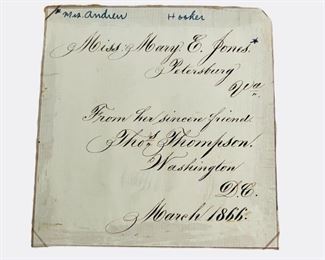 *Mrs. Andrew Hooker
Miss. Mary. E. Jones.*
Petersburg
Va
From her sincere friend
Thos Thompson.
Washington
D.C.
March 1866.